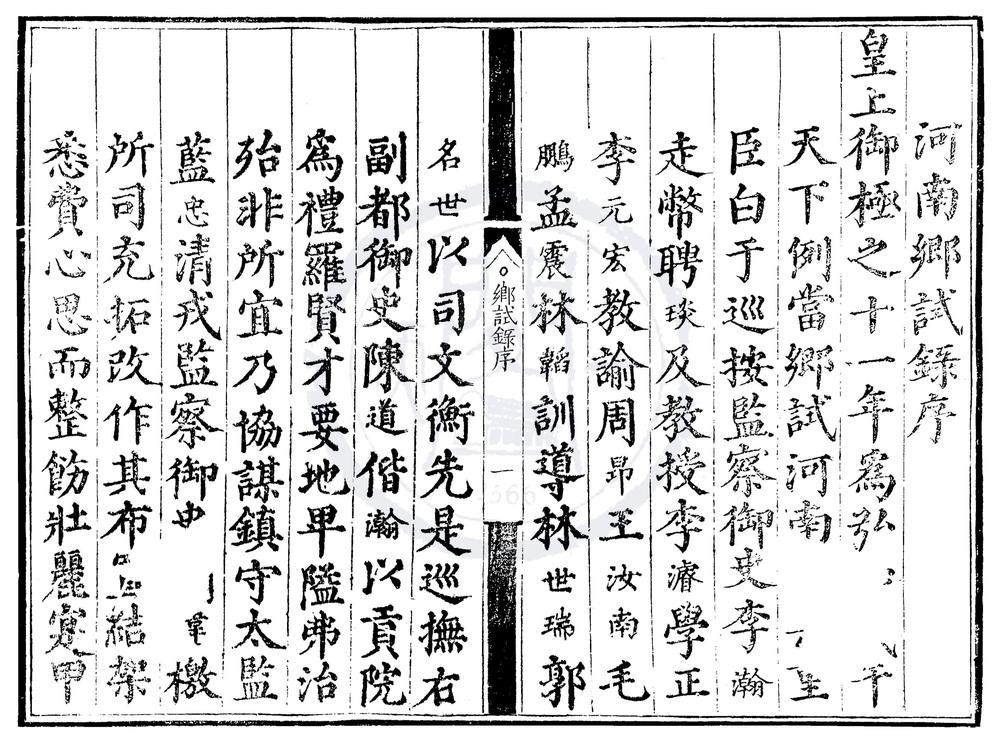 河南鄉試錄序
皇上御極之十一年爲弘午
天下例當鄉試河南
臣白于巡按監察御史李瀚
走幣聘琰及教授李濬學正
李元宏教諭周昂王汝南毛
鵬孟震林韜訓導林世瑞郭
鄉試錄序
一
名世以司文衡先是巡撫右
副都御史陳道偕瀚以貢院
爲禮羅賢才要地卑隘弗治
殆非所宜乃協謀鎮守太監
藍忠清戎監察御史檄
所司充拓改作其布結架
悉費心思而整飭壯麗寔甲